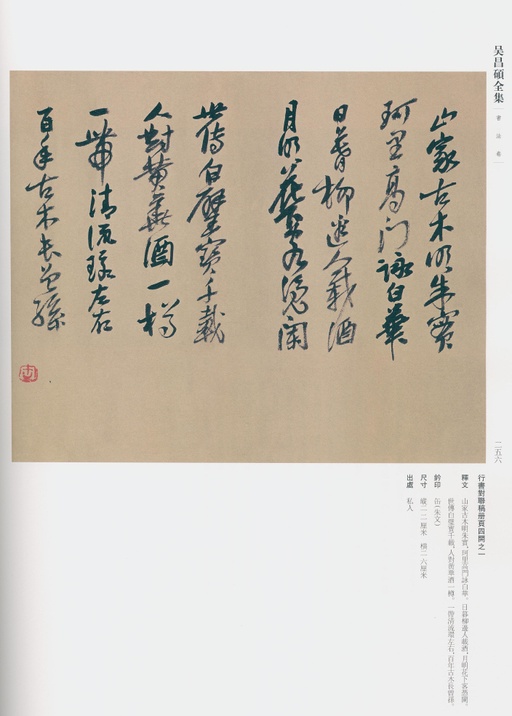 吴昌碩全集
書法卷
山家古木明朱實
珂里高門詠白華
日暮柳邊人載酒
月明花 闌
世傳白璧寶千載
人對黃華酒一樽
一帶清流環左右
百年古木長曾孫
缶
二五六
行書對聯稿册頁四開之一
釋文 山家古木明朱實，珂里高門詠白華。日暮柳邊人載酒，月明花下 闌。
世傳白璧寶千載，人對黃華酒一樽。一帶清流環左右，百年古木長曾孫。
鈐印 缶（朱文）
尺寸 縱二二厘米 橫二六厘米
出處 私人